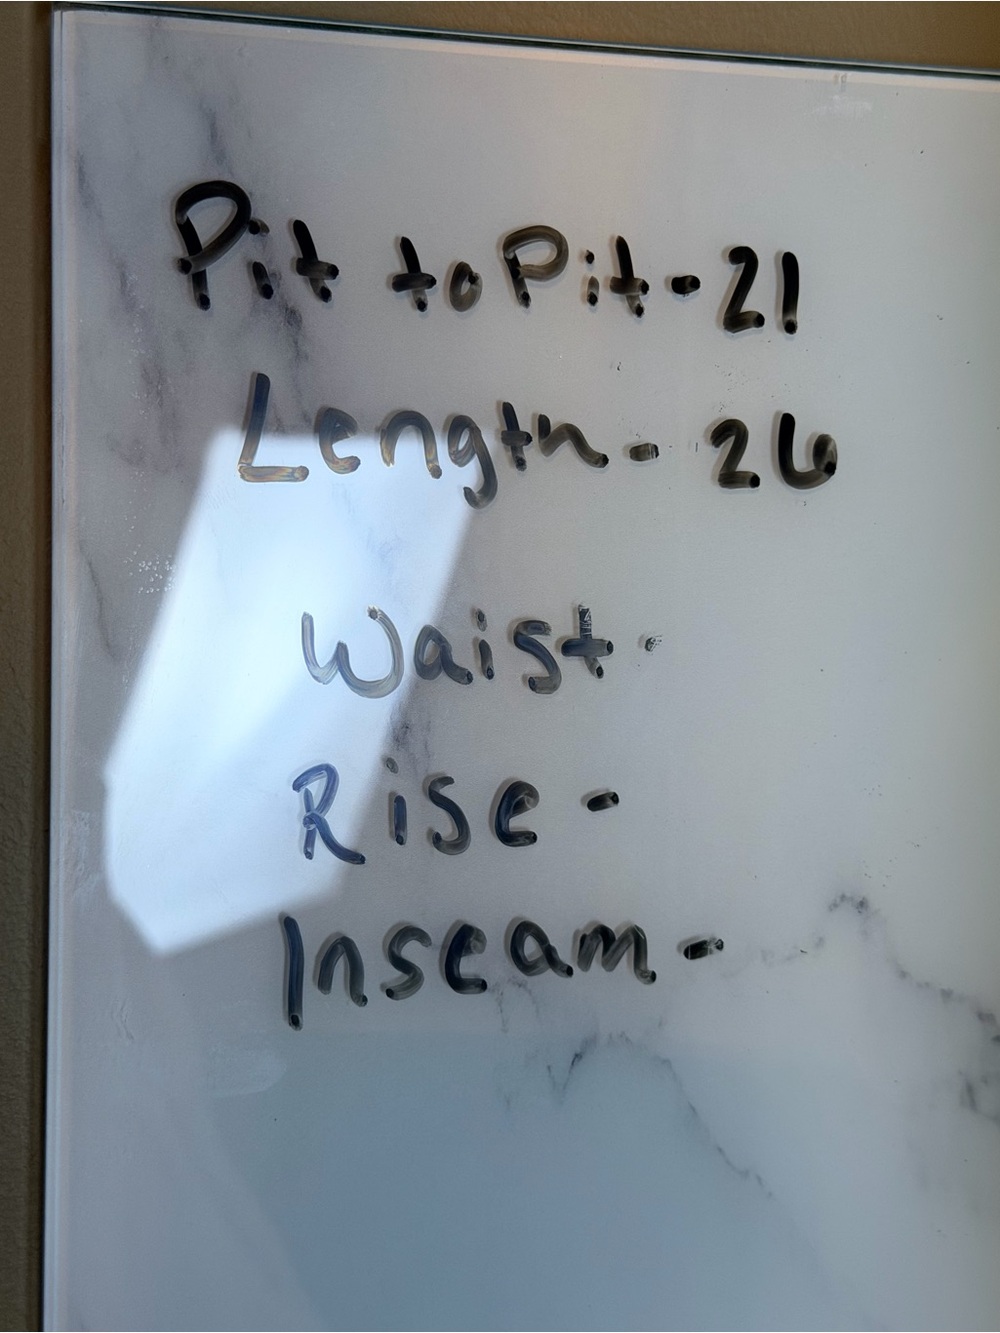 Pit to Pit - 21
Length - 26
Waist -
Rise -
Inseam -